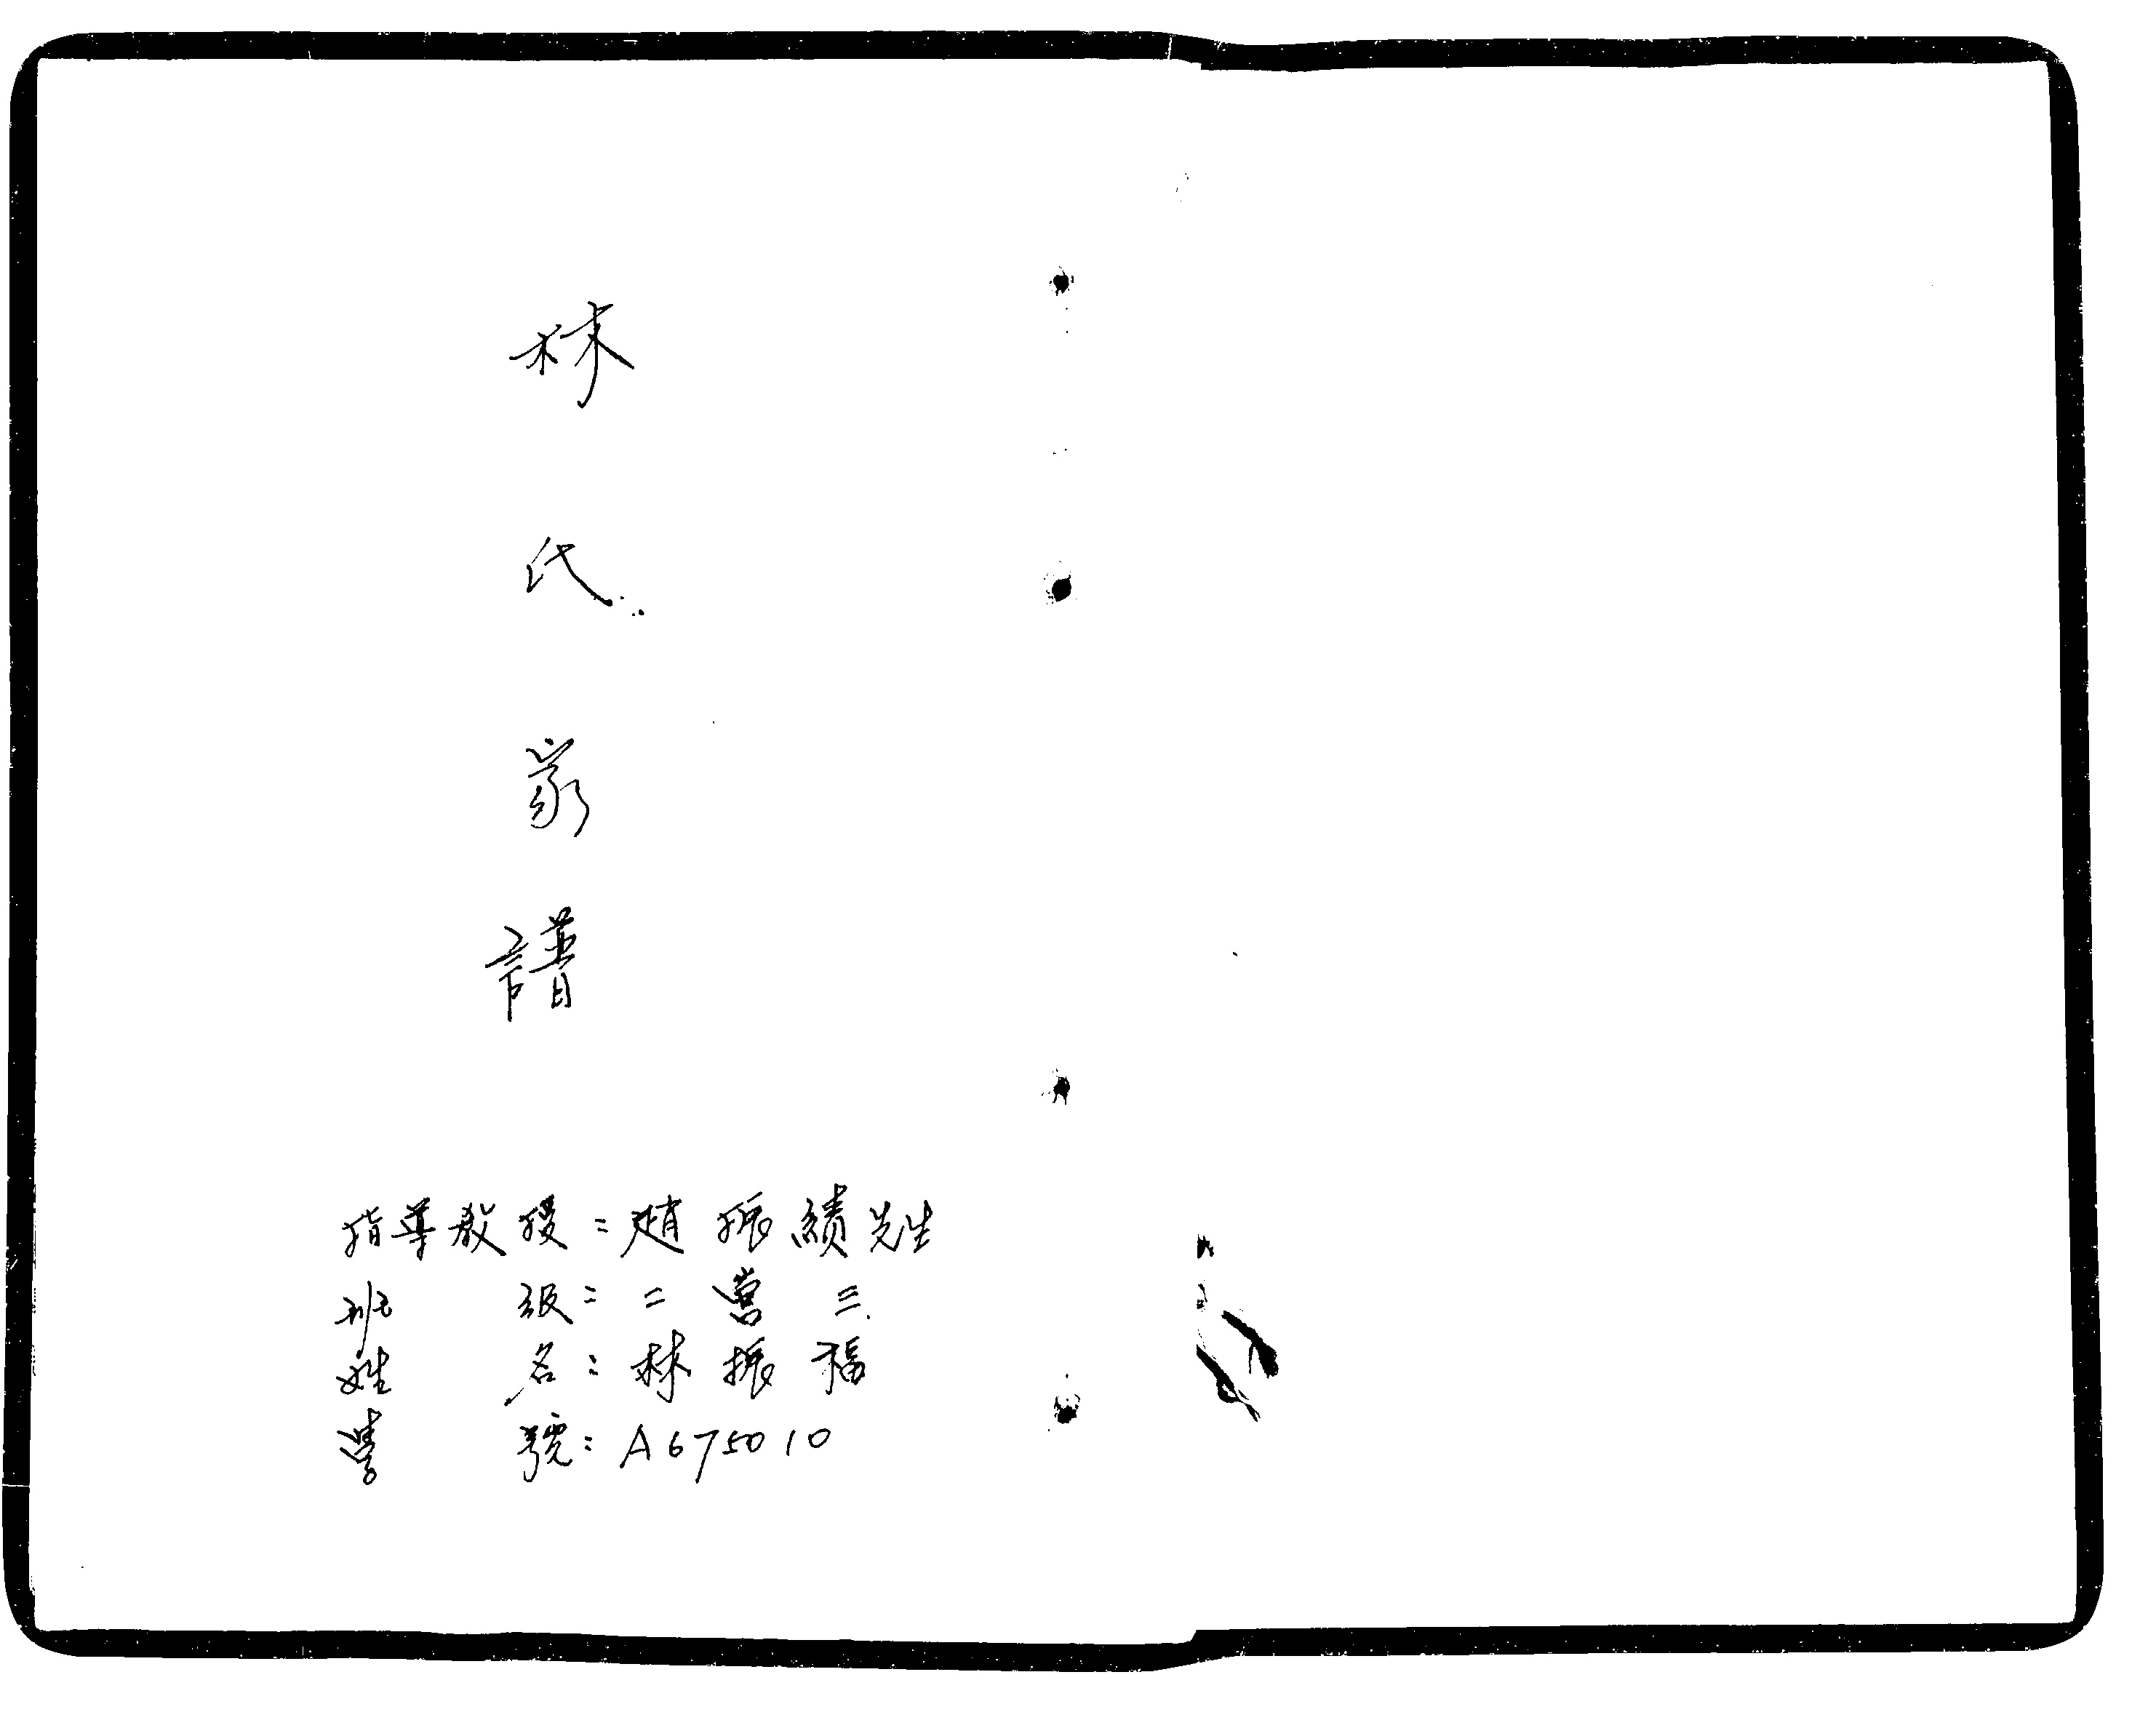 林氏家譜
指導教授:趙振績先生
班級:二營三
姓名:林振福
學號:A675010